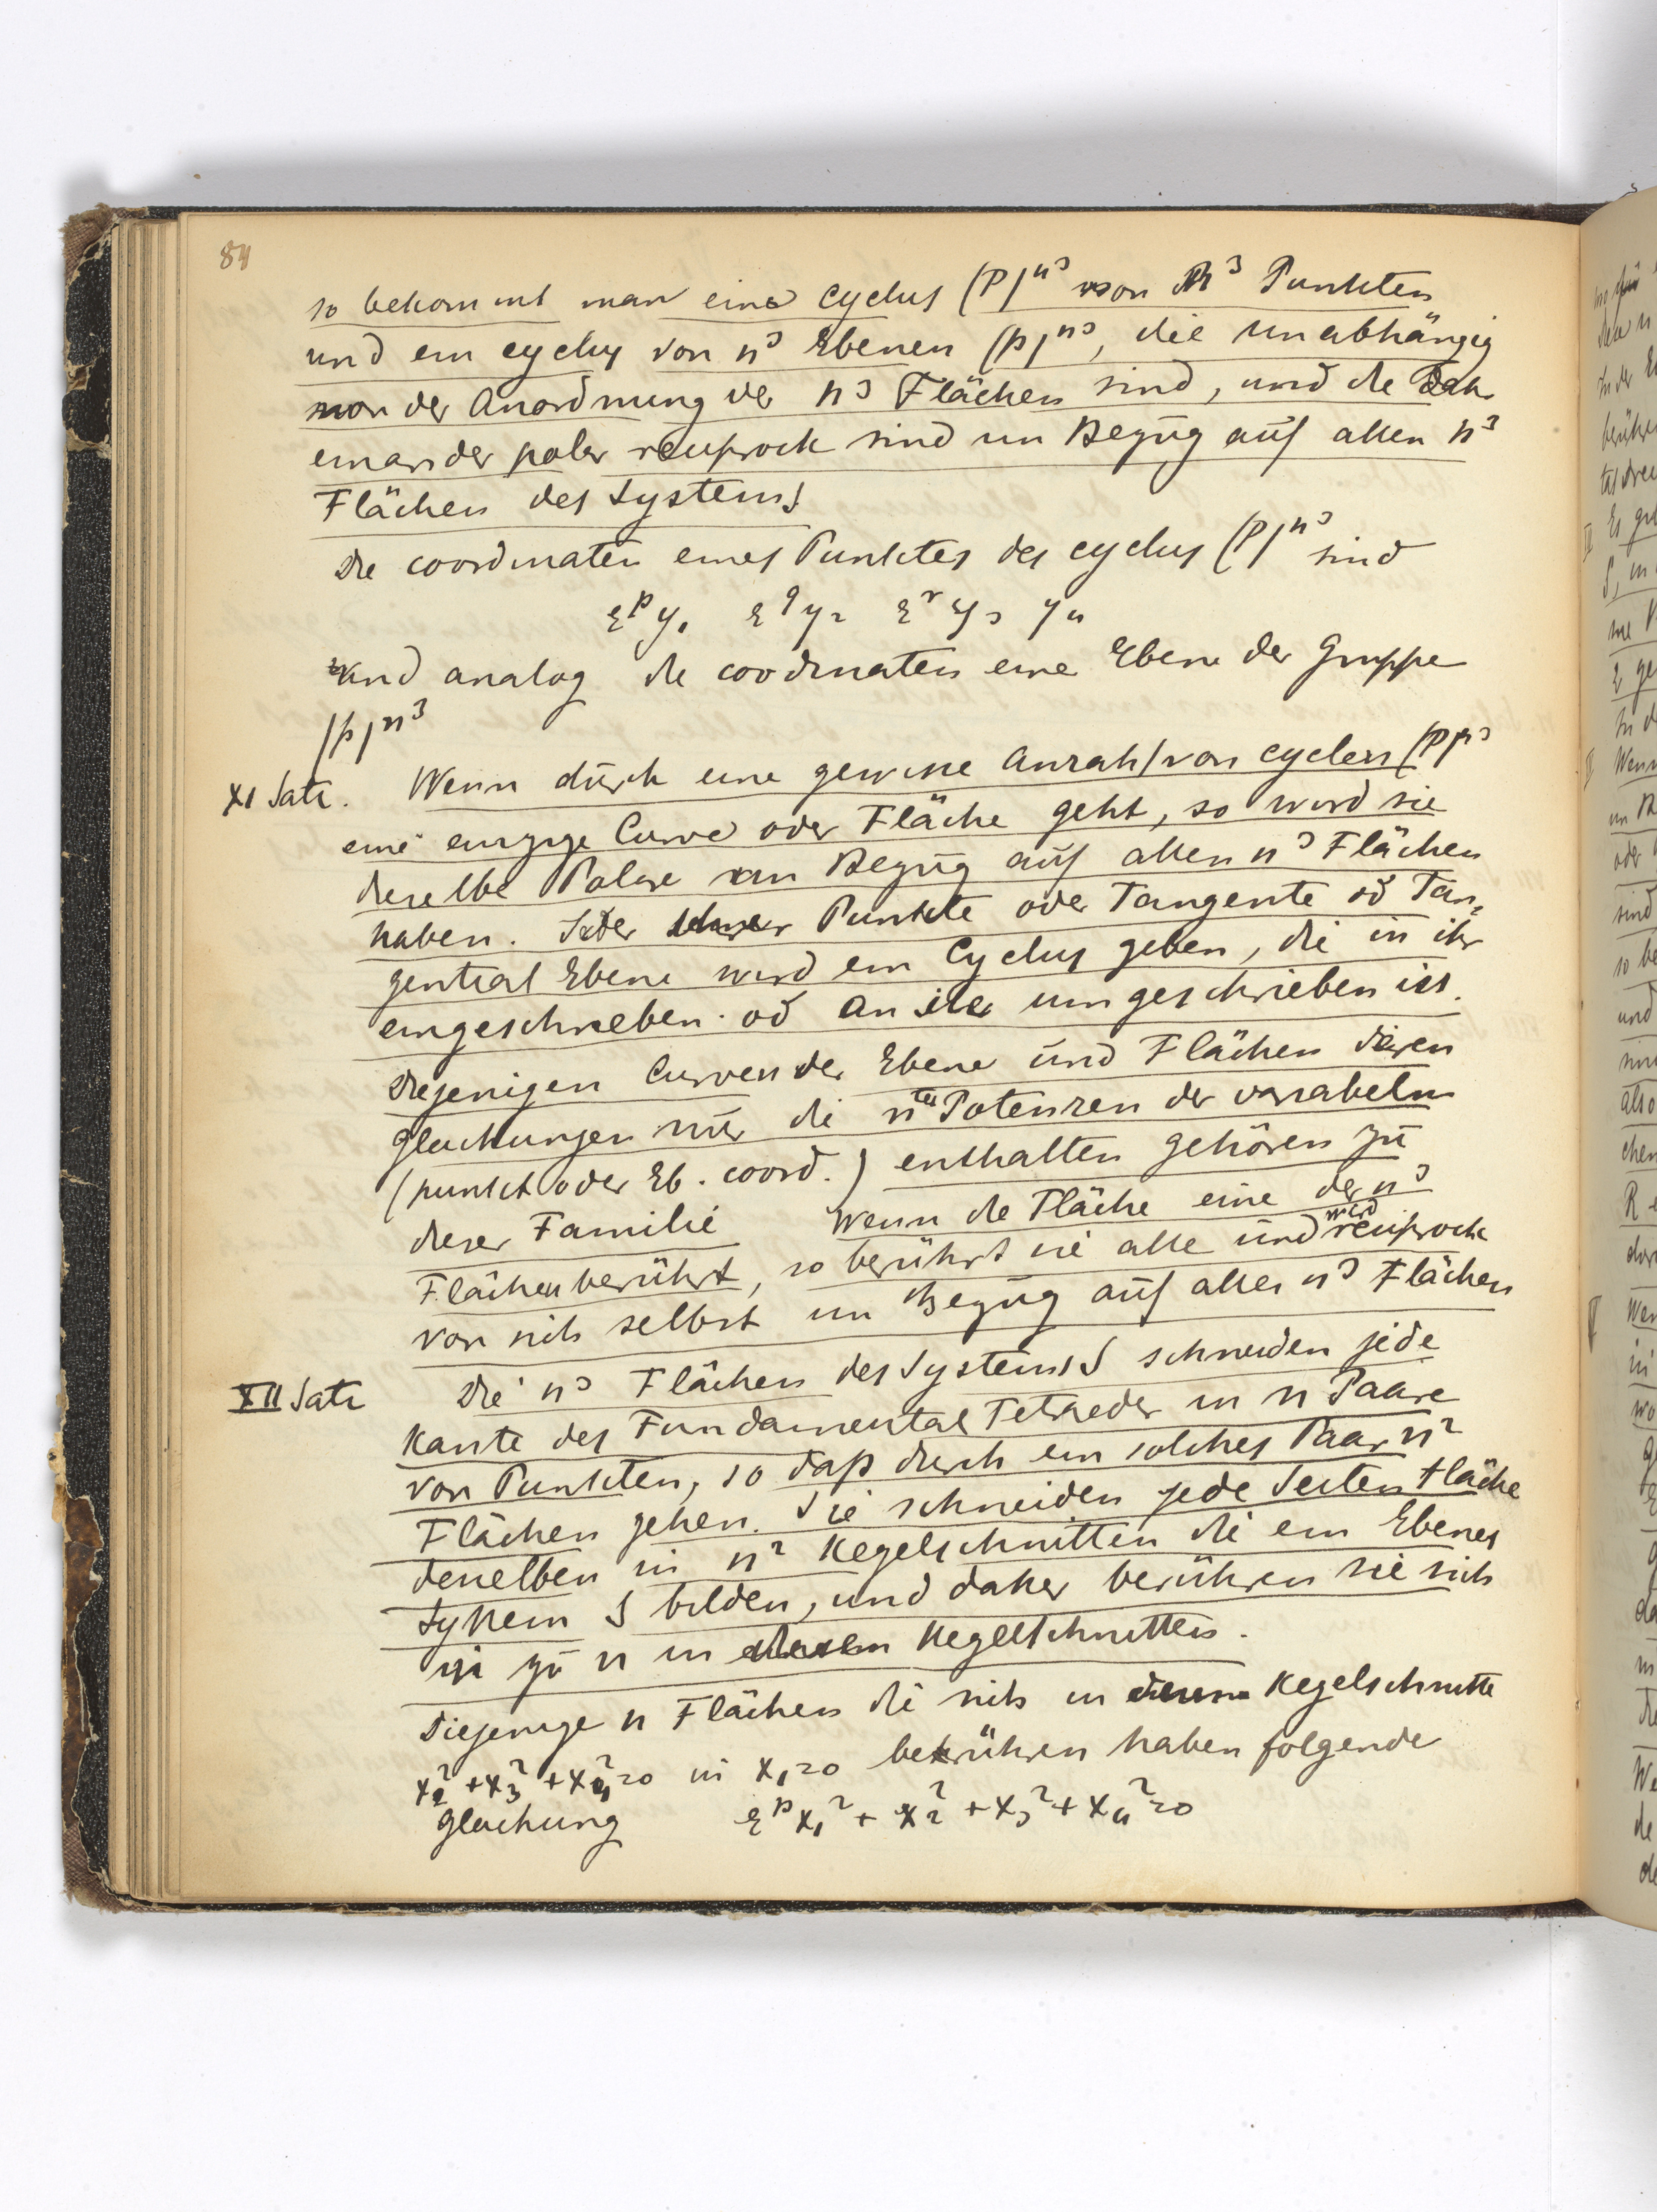 84
so bekommt man eine cyclus (P)^n³ von n³ Punkten
und ein cyclus von n³ Ebenen (p)^n³, die unabhängig
von der Anordnung der n³ Flächen sind, und die
einander polar reciprock sind in Bezug auf allen n³
Flächen des Systems
Die coordinaten eines Punktes des cyclus (P)^n³ sind
ε^p y₁ ε^q y₂ ε^r y₃ y₄
und analog die coordinaten eine Ebene der Gruppe
(p)^n³
XI Satz. Wenn durch eine gewisse Anzahl von cyclen (P)^n³
eine einzige Curve oder Fläche geht, so wird sie
dieselbe Polare in Bezug auf allen n³ Flächen
haben. Jeder ihrer Punkte oder Tangente od Tan=
gential Ebene wird ein Cyclus geben, die in ihr
eingeschrieben od an ihr umgeschrieben ist.
Diejenigen Curven der Ebene und Flächen deren
Gleichungen nur die nten Potenzen der variabeln
(punkt oder Eb. coord.) enthalten gehören zu
dieser Familie Wenn die Fläche eine der n³
Flächen berührt, so berührt sie alle und wird reciprock
von sich selbst in Bezug auf aller n³ Flächen
XII Satz Die n³ Flächen des Systems S schneiden jede
Kante des Fundamental Tetraeder in n Paare
von Punkten, so daß durch ein solches Paar n²
Flächen gehen. Sie schneiden jede Seiten Fläche
denselben in n² Kegelschnitten die ein Ebenes
System S bilden, und daher berühren sie sich
zu n in diesen Kegelschnitten.
Diejenige n Flächen die sich in diesem Kegelschnitte
x₂² + x₃² + x₄² = 0 in x₁ = 0 berühren haben folgende
Gleichung ε^p x₁² + x₂² + x₃² + x₄² = 0